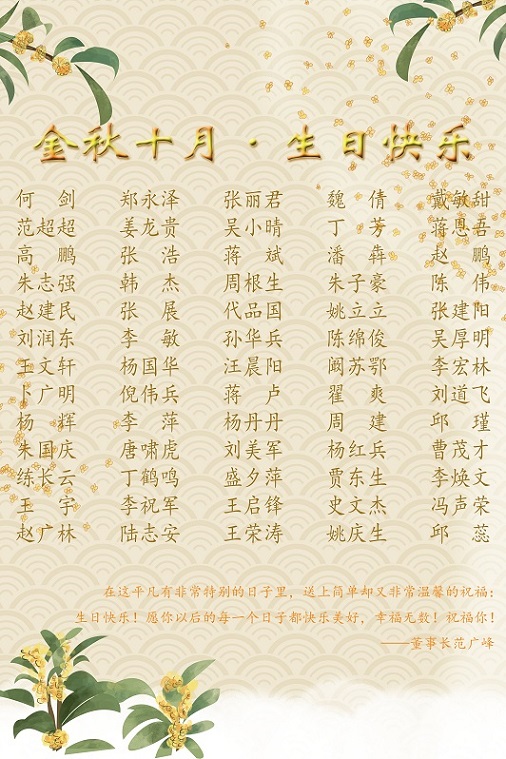 金秋十月·生日快乐
何 剑 郑永泽 张丽君 魏 倩 戴敏甜
范超超 姜龙贵 吴小晴 丁 芳 蒋恩吾
高 鹏 张 浩 蒋 斌 潘 犇 赵 鹏
朱志强 韩 杰 周根生 朱子豪 陈 伟
赵建民 张 展 代品国 姚立立 张建阳
刘润东 李 敏 孙华兵 陈绵俊 吴厚明
王文轩 杨国华 汪晨阳 阚苏鄂 李宏林
卜广明 倪伟兵 蒋 卢 翟 爽 刘道飞
杨 辉 李 萍 杨丹丹 周 建 邱 瑾
朱国庆 唐啸虎 刘美军 杨红兵 曹茂才
练长云 丁鹤鸣 盛夕萍 贾东生 李焕文
王 宇 李祝军 王启锋 史文杰 冯声荣
赵广林 陆志安 王荣涛 姚庆生 邱 蕊
在这平凡有非常特别的日子里，送上简单却又非常温馨的祝福：
生日快乐！愿你以后的每一个日子都快乐美好，幸福无数！祝福你！
——董事长范广峰